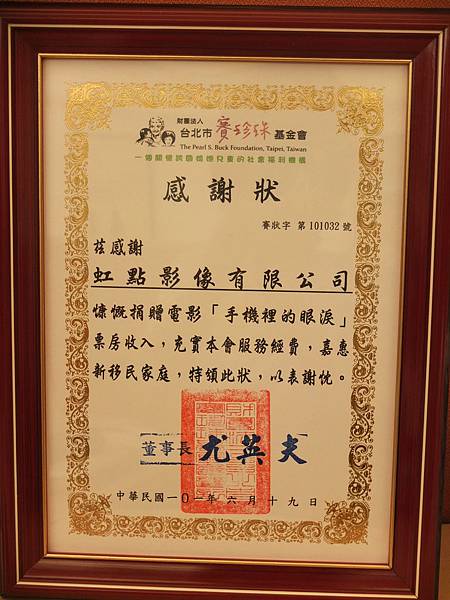 財團法人
台北市賽珍珠基金會
The Pearl S. Buck Foundation, Taipei, Taiwan
一個關懷跨國婚姻兒童的社會福利機構
感謝狀
賽狀字 第101032號
茲感謝
虹點影像有限公司
慷慨捐贈電影「手機裡的眼淚」
票房收入，充實本會服務經費，嘉惠
新移民家庭，特頒此狀，以表謝忱。
董事長 尤英夫
中華民國一０一年六月十九日